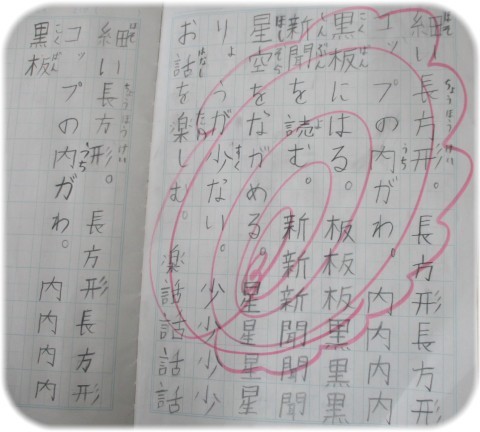 細い長方形。長方形長方形
コップの内がわ。内内内内
黒板にはる。板板板黒黒黒
新聞を読む。新新新聞聞聞
星空をながめる。星星星星
りょうが少ない。少少少少
お話を楽しむ。楽話話話話
細い長方形。長方形長方形
コップの内がわ。内内内内
黒板